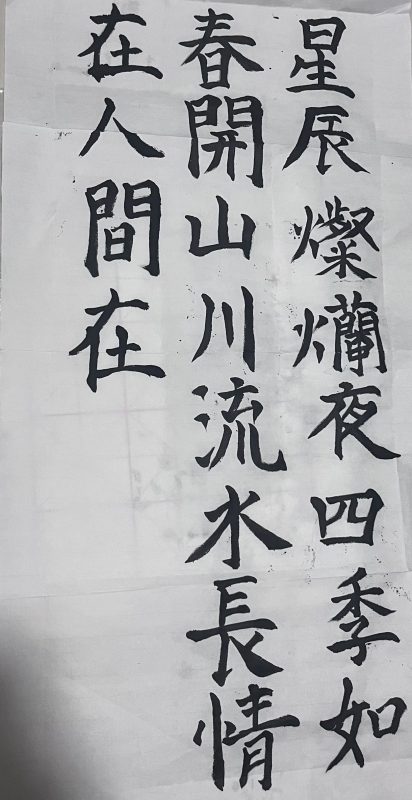 星辰燦爛夜四季如
春開山川流水長情
在人間在